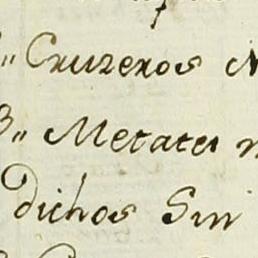 Cruzeros
Metates
dichos Sin